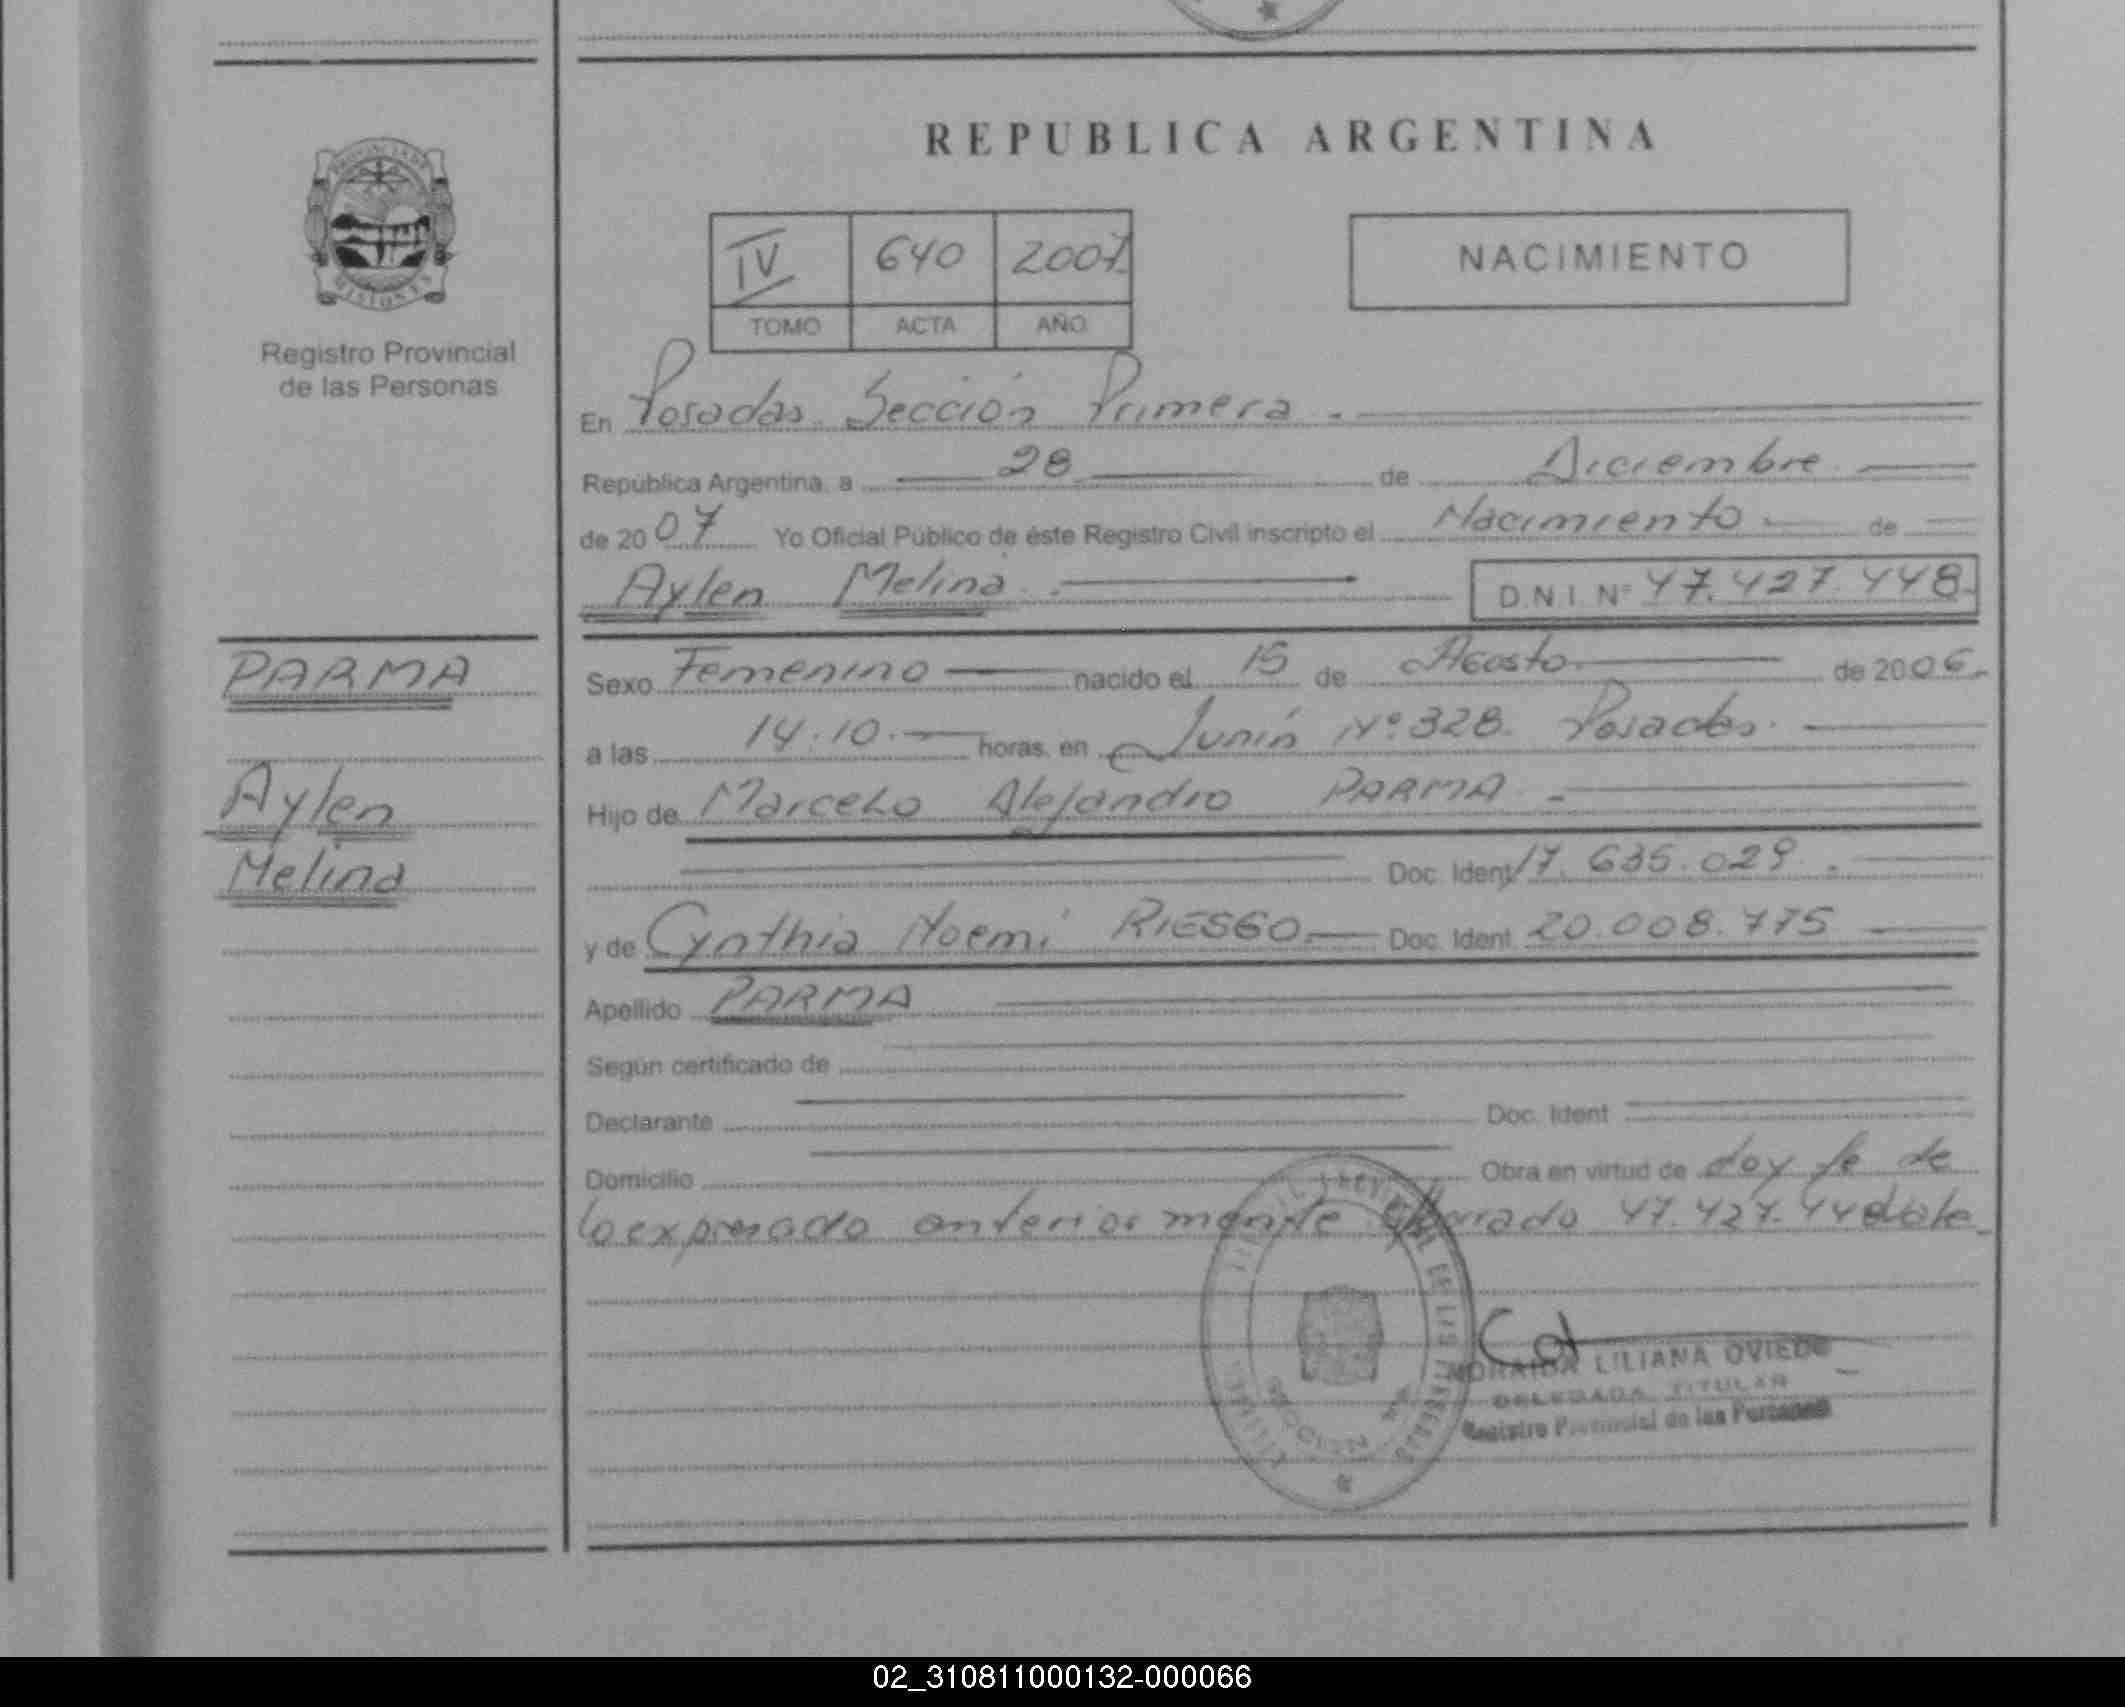 REPUBLICA ARGENTINA
PROVINCIA DE
MISIONES
Registro Provincial
de las Personas
IV 640 2007
TOMO ACTA AÑO
NACIMIENTO
En Posadas Sección Primera.
República Argentina, a 28 de Diciembre
de 2007 Yo Oficial Público de éste Registro Civil inscripto el Nacimiento de
Aylen Melina. D.N.I. Nº 47.427.448
PARMA
Aylen
Melina
Sexo Femenino nacido el 15 de Agosto de 2006.
a las 14.10. horas, en Junín Nº 328. Posadas.
Hijo de Marcelo Alejandro PARMA
Doc. Ident 17.635.029.
y de Cynthia Noemí RIESGO Doc. Ident. 20.008.775
Apellido PARMA
Según certificado de
Declarante Doc. Ident
Domicilio Obra en virtud de doy fe de
lo expresado anteriormente 47.427.448 vale
LILIANA OVIEDO
DELEGADA TITULAR
Registro Provincial de las Personas
02_310811000132-000066